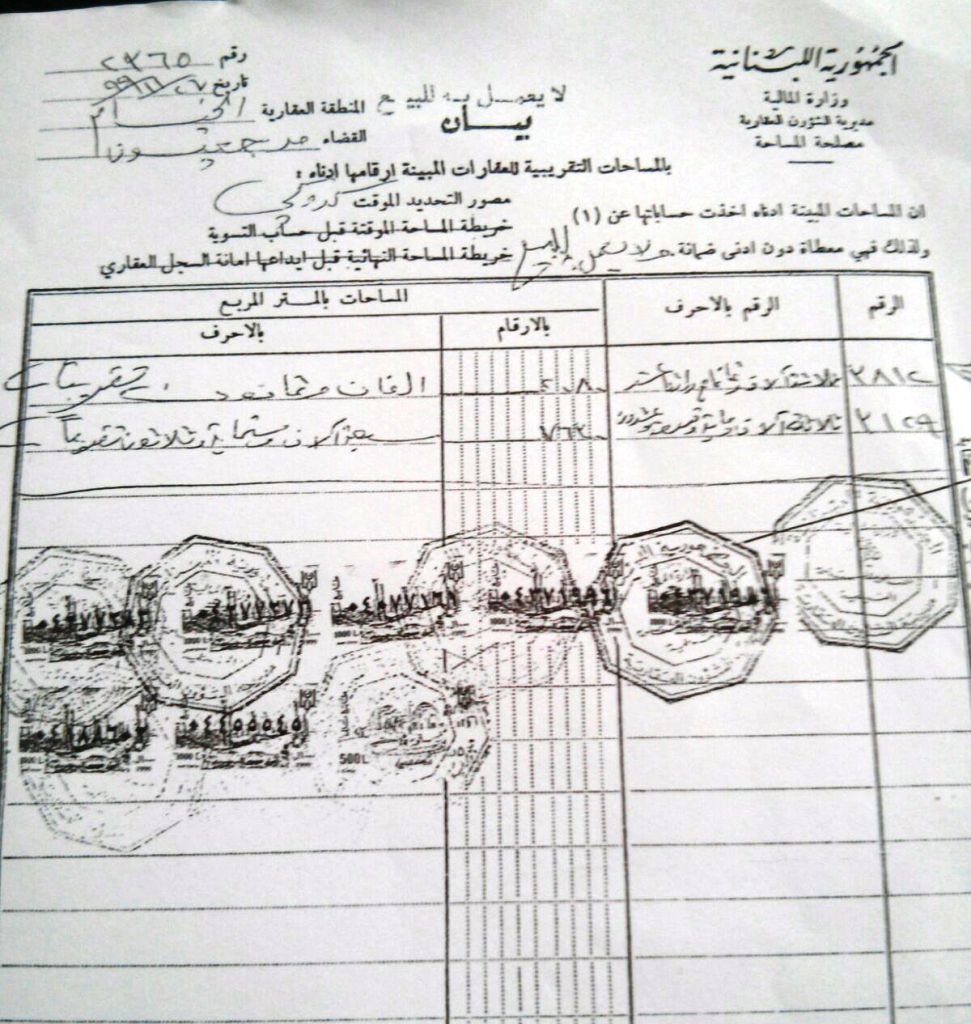 الجمهورية اللبنانية
وزارة المالية
مديرية الشؤون العقارية
مصلحة المساحة
رقم ٢٣٦٥
تاريخ
لا يعمل به للبيع
المنطقة العقارية الخيام
بيان
القضاء مرجعيون
بالمساحات التقريبية للعقارات المبينة ارقامها ادناه :
ان المساحات المبينة ادناه اخذت حساباتها عن (١)
مصور التحديد الموقت كروكي
خريطة المساحة الموقتة قبل حساب التسوية
خريطة المساحة النهائية قبل ايداعها امانة السجل العقاري
ولذلك فهي معطاة دون ادنى ضمانة ولا يعمل به للبيع
الرقم
الرقم بالاحرف
المساحات بالمتر المربع
بالارقام
بالاحرف
٣٨١٢ ثلاثة آلاف وثمانماية واثنا عشر ٢٠٨٠ الفان وثمانون تقريباً
٣١٢٩ ثلاثة آلاف وماية وتسعة وعشرون ٧٦٣٠ سبعة آلاف وستماية وثلاثون تقريباً
1000 L
500 L